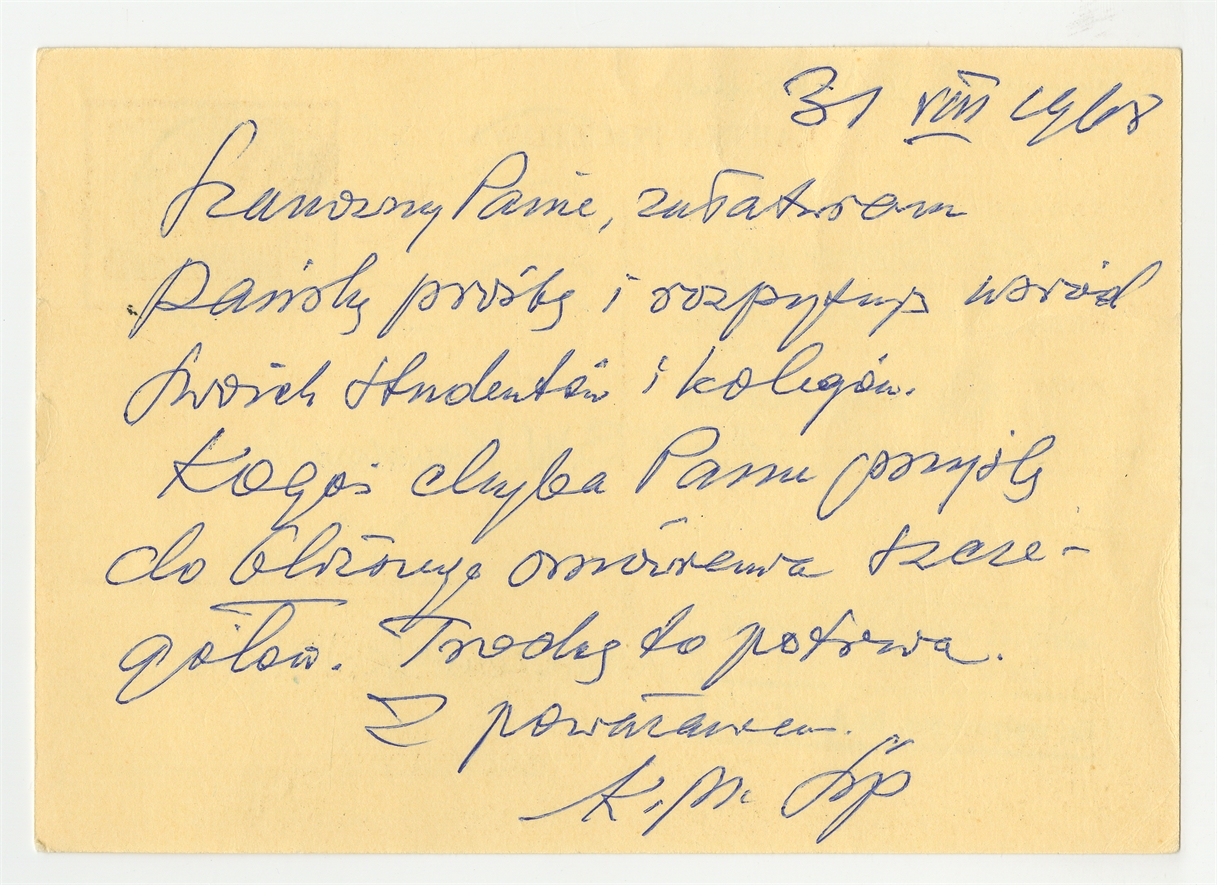 31 VIII 1968
Szanowny Panie, załatwiam
Pańską prośbę i rozpytuję wśród
swoich studentów i kolegów.
Kogoś chyba Panu przyślę
do bliższego omówienia szcze-
gółów. Trochę to potrwa.
Z poważaniem.
K. M.